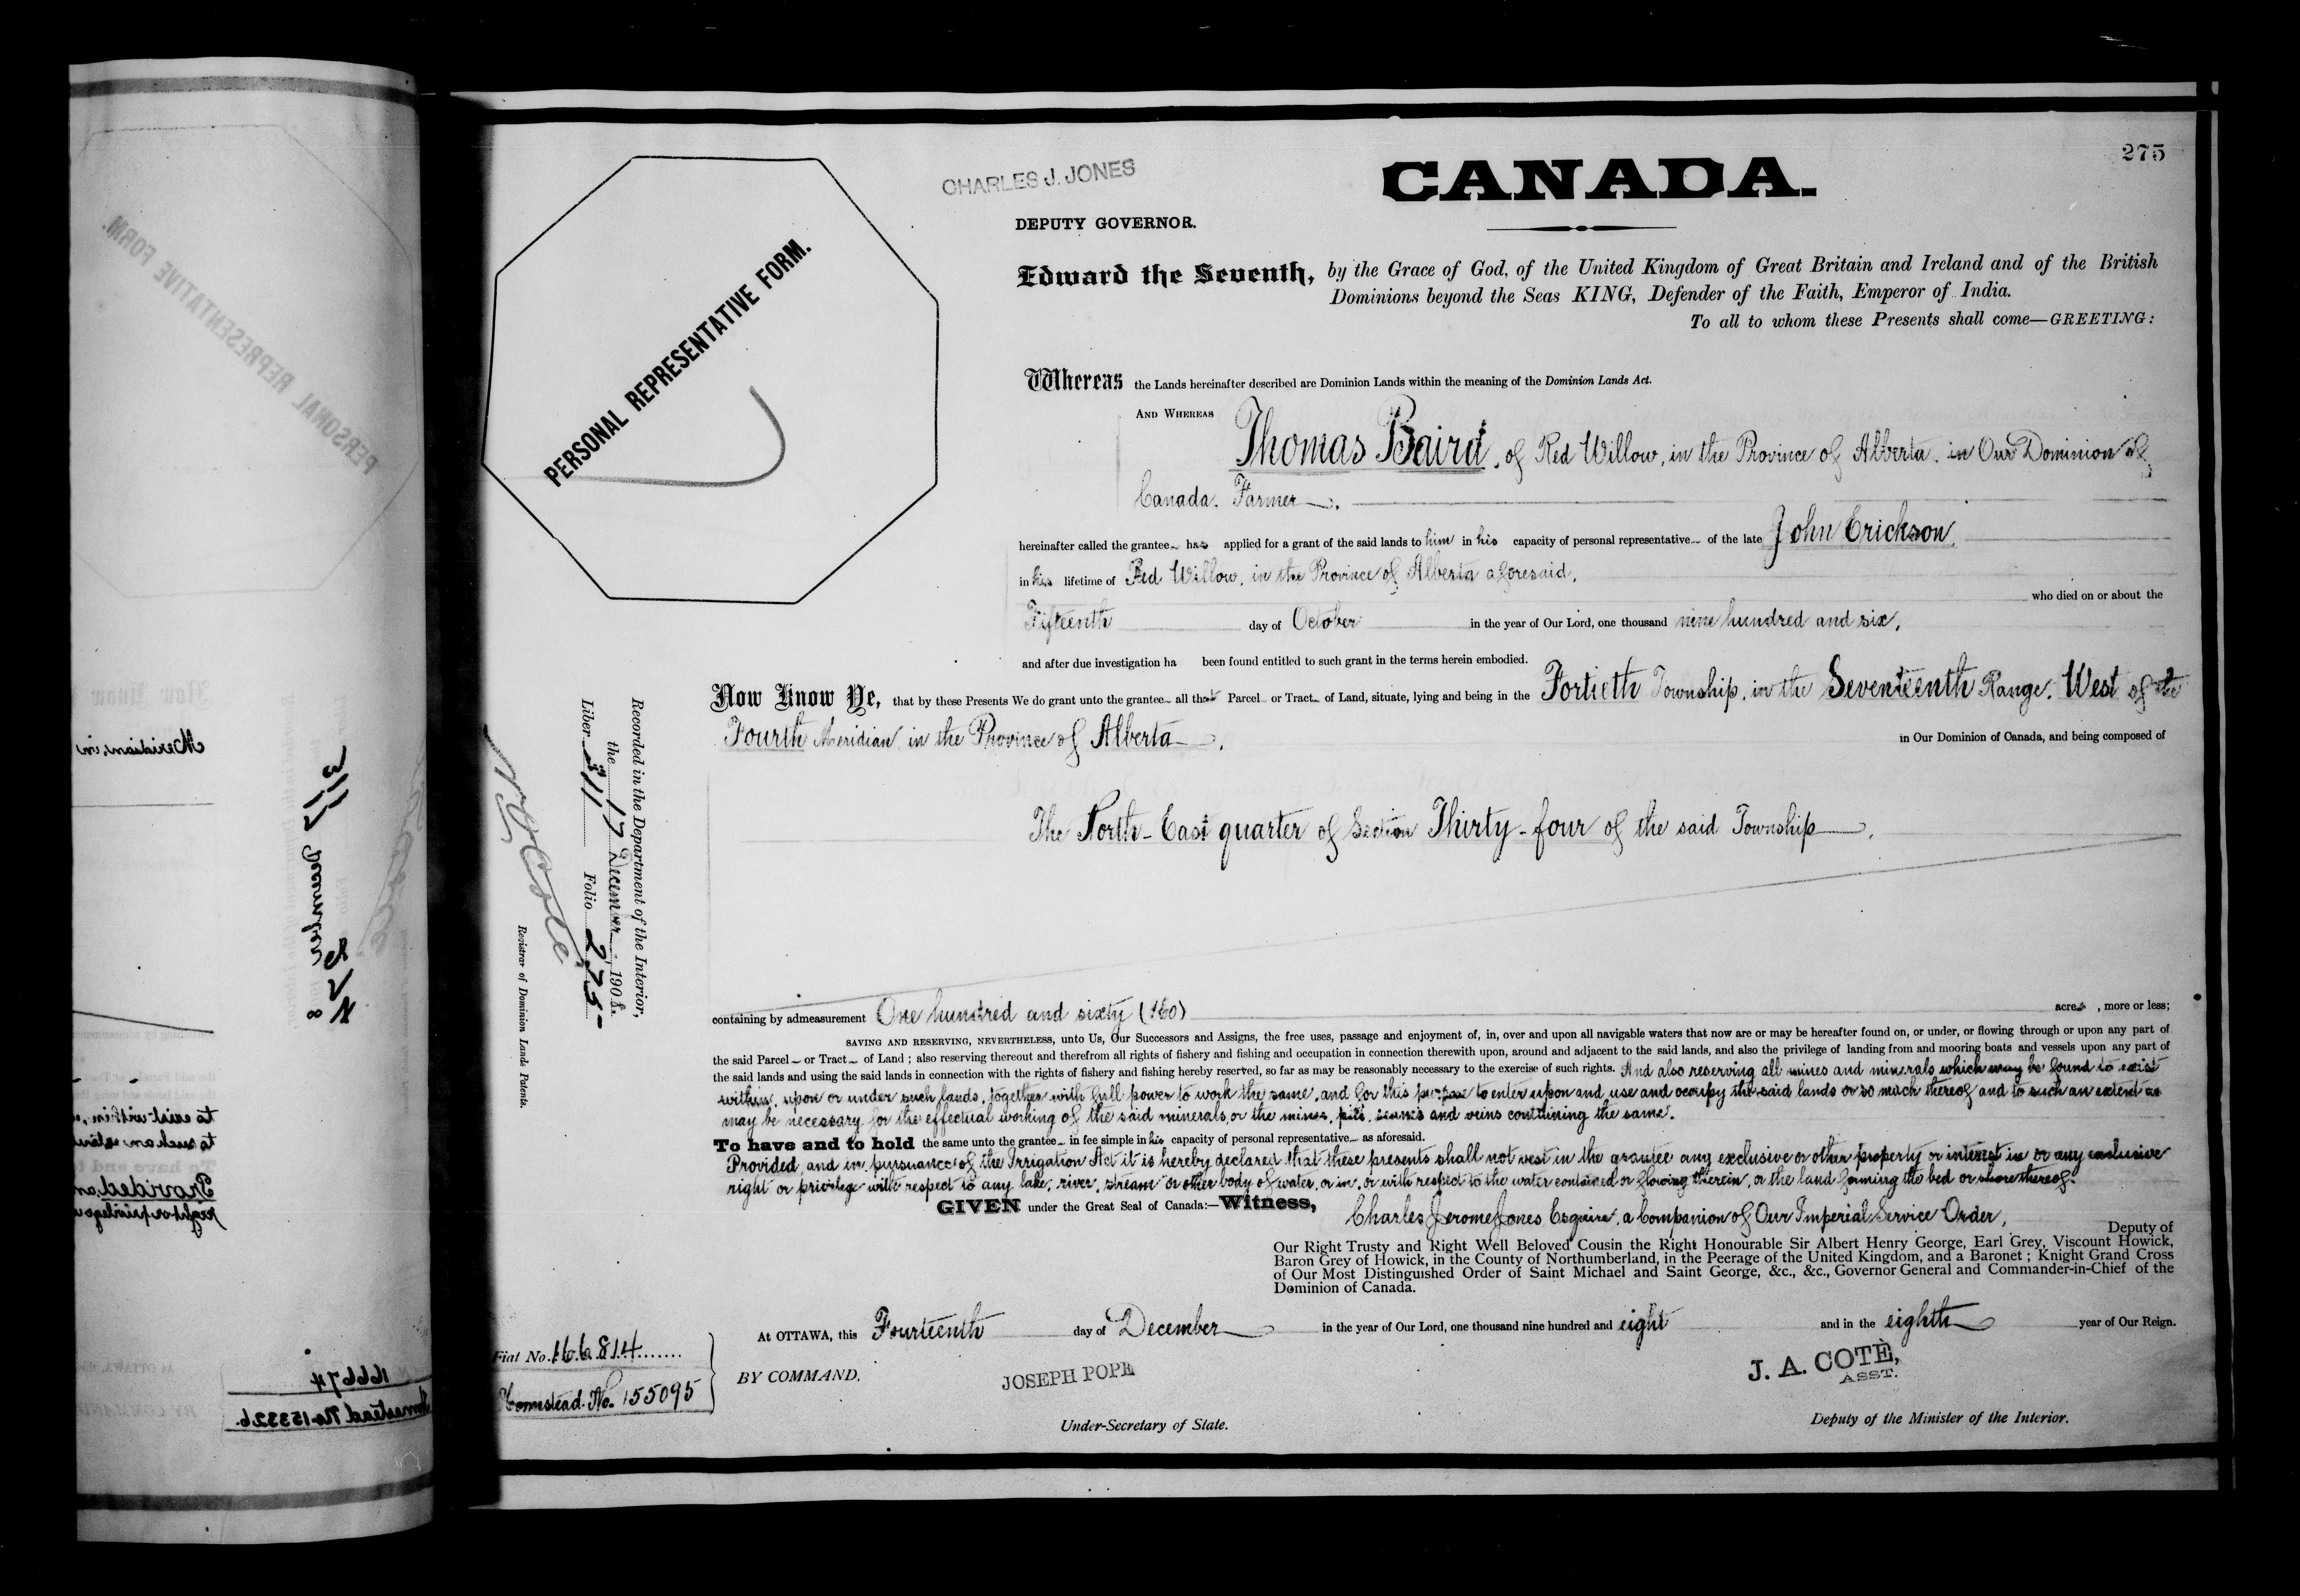 275
CHARLES J. JONES
CANADA.
DEPUTY GOVERNOR.
PERSONAL REPRESENTATIVE FORM.
Edward the Seventh, by the Grace of God, of the United Kingdom of Great Britain and Ireland and of the British
Dominions beyond the Seas KING, Defender of the Faith, Emperor of India.
To all to whom these Presents shall come—GREETING:
Whereas the Lands hereinafter described are Dominion Lands within the meaning of the Dominion Lands Act.
AND WHEREAS
Thomas Baird, of Red Willow, in the Province of Alberta, in Our Dominion of
Canada, Farmer
hereinafter called the grantee has applied for a grant of the said lands to him in his capacity of personal representative of the late John Erickson,
in his lifetime of Red Willow, in the Province of Alberta aforesaid,
who died on or about the
Fifteenth day of October in the year of Our Lord, one thousand nine hundred and six,
and after due investigation ha been found entitled to such grant in the terms herein embodied.
Now Know Ye, that by these Presents We do grant unto the grantee all that Parcel or Tract of Land, situate, lying and being in the Fortieth Township, in the Seventeenth Range, West of the
Fourth Meridian, in the Province of Alberta, in Our Dominion of Canada, and being composed of
The North-East quarter of Section Thirty-four of the said Township
Recorded in the Department of the Interior,
the 17 December 1908.
Liber 311 Folio 275
Registrar of Dominion Lands Patents.
containing by admeasurement One hundred and sixty (160) acres, more or less;
SAVING AND RESERVING, NEVERTHELESS, unto Us, Our Successors and Assigns, the free uses, passage and enjoyment of, in, over and upon all navigable waters that now are or may be hereafter found on, or under, or flowing through or upon any part of
the said Parcel or Tract of Land; also reserving thereout and therefrom all rights of fishery and fishing and occupation in connection therewith upon, around and adjacent to the said lands, and also the privilege of landing from and mooring boats and vessels upon any part of
the said lands and using the said lands in connection with the rights of fishery and fishing hereby reserved, so far as may be reasonably necessary to the exercise of such rights. And also reserving all mines and minerals which may be found to exist
within, upon or under such lands, together with full power to work the same, and for this purpose to enter upon and use and occupy the said lands or so much thereof and to such an extend as
may be necessary for the effectual working of the said minerals, or the mines, pits, seams and veins containing the same.
To have and to hold the same unto the grantee in fee simple in his capacity of personal representative as aforesaid.
Provided, and in pursuance of the Irrigation Act it is hereby declared that these presents shall not vest in the grantee any exclusive or other property or interest in or any exclusive
right or privilege with respect to any lake, river, stream or other body of water, or in, or with respect to the water contained or flowing therein, or the land forming the bed or shore thereof.
GIVEN under the Great Seal of Canada:—Witness, Charles Jerome Jones Esquire, a Companion of Our Imperial Service Order,
Deputy of
Our Right Trusty and Right Well Beloved Cousin the Right Honourable Sir Albert Henry George, Earl Grey, Viscount Howick,
Baron Grey of Howick, in the County of Northumberland, in the Peerage of the United Kingdom, and a Baronet; Knight Grand Cross
of Our Most Distinguished Order of Saint Michael and Saint George, &c., &c., Governor General and Commander-in-Chief of the
Dominion of Canada.
At OTTAWA, this Fourteenth day of December in the year of Our Lord, one thousand nine hundred and eight and in the eighth year of Our Reign.
Fiat No. 166814
Homestead No. 155095
BY COMMAND.
JOSEPH POPE
Under-Secretary of State.
J. A. COTÉ,
ASST.
Deputy of the Minister of the Interior.